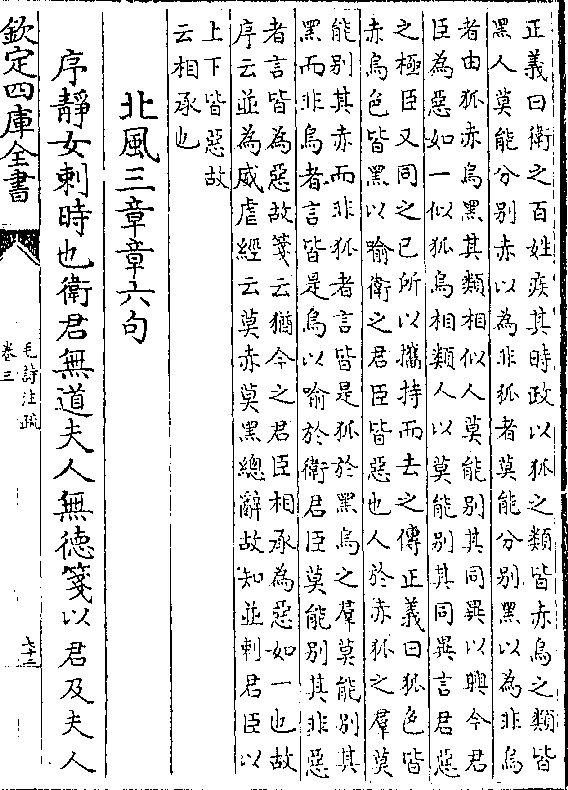 正義曰衛之百姓疾其時政以狐之類皆赤烏之類皆
黑人莫能分别赤以為非狐者莫能分别黑以為非烏
者由狐赤烏黑其類相似人莫能别其同異以興今君
臣為惡如一似狐烏相類人以莫能别其同異言君惡
之極臣又同之已所以攜持而去之傳正義曰狐色皆
赤烏色皆黑以喻衛之君臣皆惡也人於赤狐之羣莫
能别其赤而非狐者言皆是狐於黑烏之羣莫能别其
黑而非烏者言皆是烏以喻於衛君臣莫能别其非惡
者言皆為惡故箋云猶今之君臣相承為惡如一也故
序云並為威虐經云莫赤莫黑總辭故知並刺君臣以
上下皆惡故
云相承也
北風三章章六句
序靜女刺時也衛君無道夫人無德箋以君及夫人
欽定四庫全書
毛詩注疏
卷三
七十三